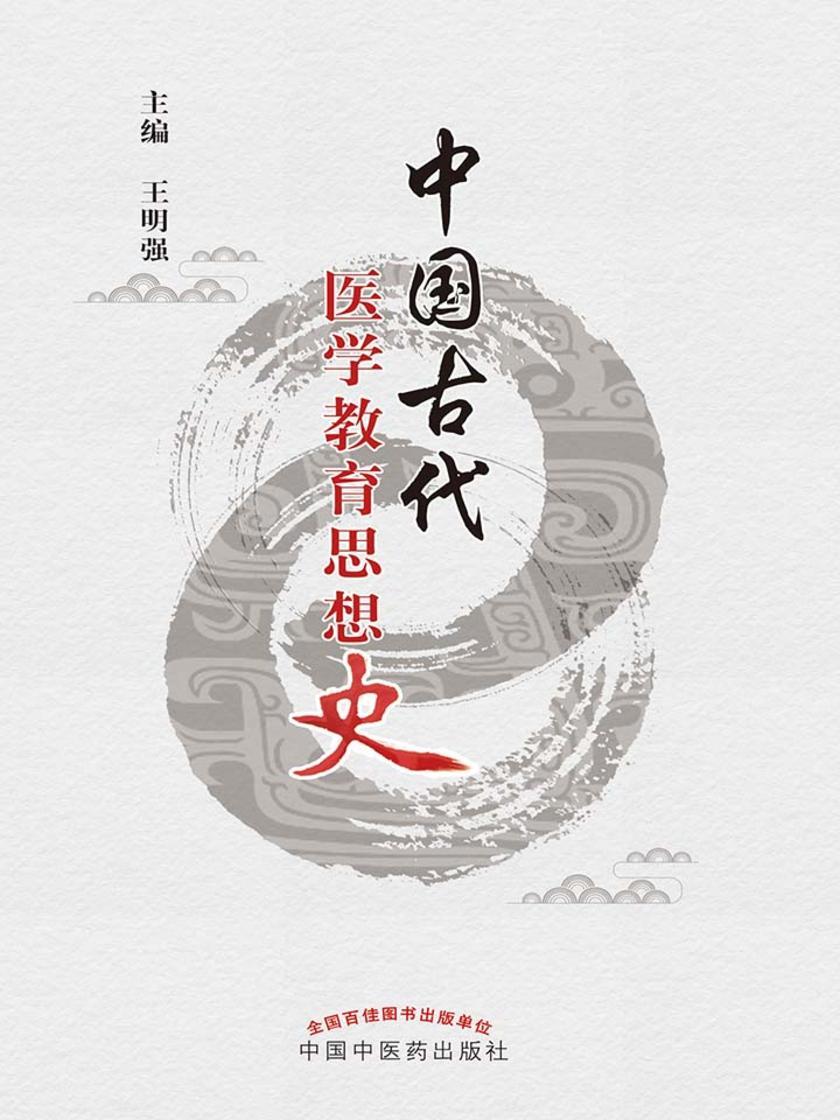 中国古代
医学教育思想史
主编 王明强
全国百佳图书出版单位
中国中医药出版社